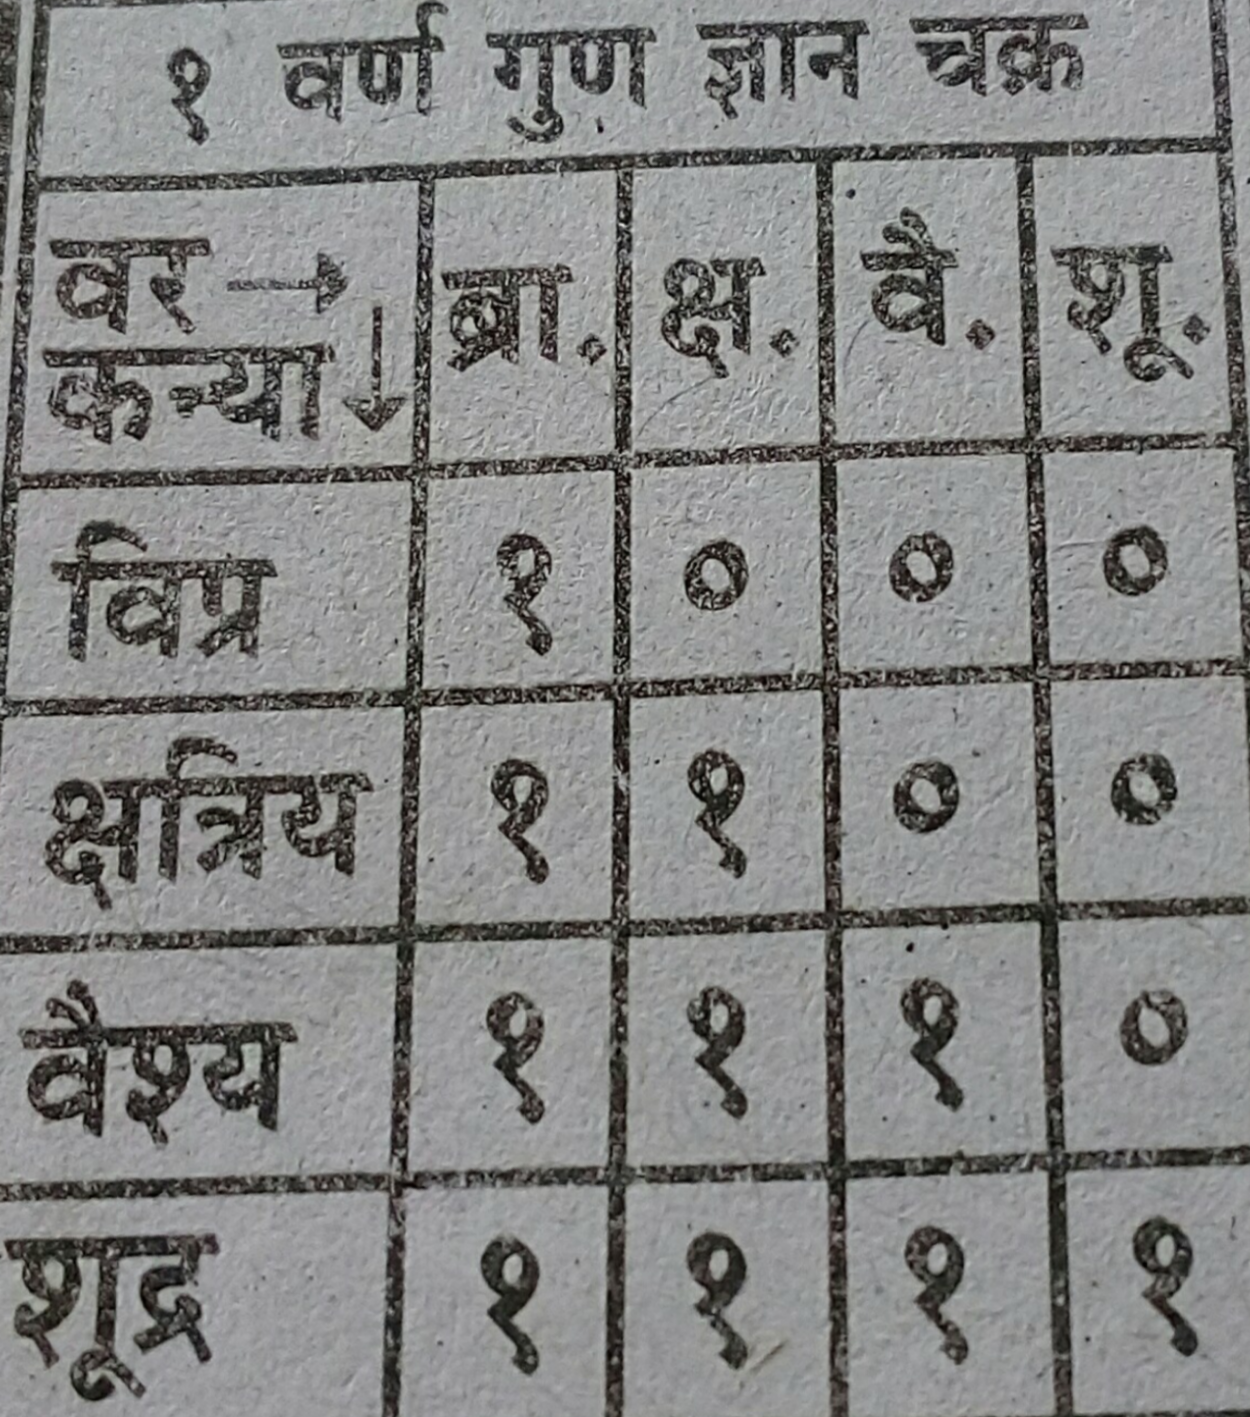 १ वर्ण गुण ज्ञान चक्र
वर → ब्रा. क्ष. वै. शू.
कन्या ↓
विप्र १ ० ० ०
क्षत्रिय १ १ ० ०
वैश्य १ १ १ ०
शूद्र १ १ १ १